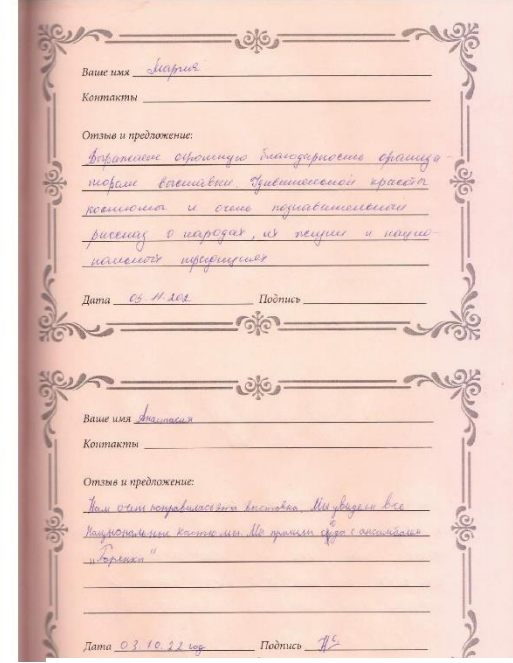 Ваше имя Мария
Контакты
Отзыв и предложение:
Выражаем огромную благодарность организа-
торам выставки. Удивительной красоты
костюмы и очень познавательный
рассказ о народах, их жизни и нацио-
нальных традициях
Дата 03.11.202 Подпись
Ваше имя Анастасия
Контакты
Отзыв и предложение:
Нам очень понравилась эта выставка. Мы увидели все
национальные костюмы. Мы пришли сюда с ансамблем
„Горенка“
Дата 03.10.22 год Подпись